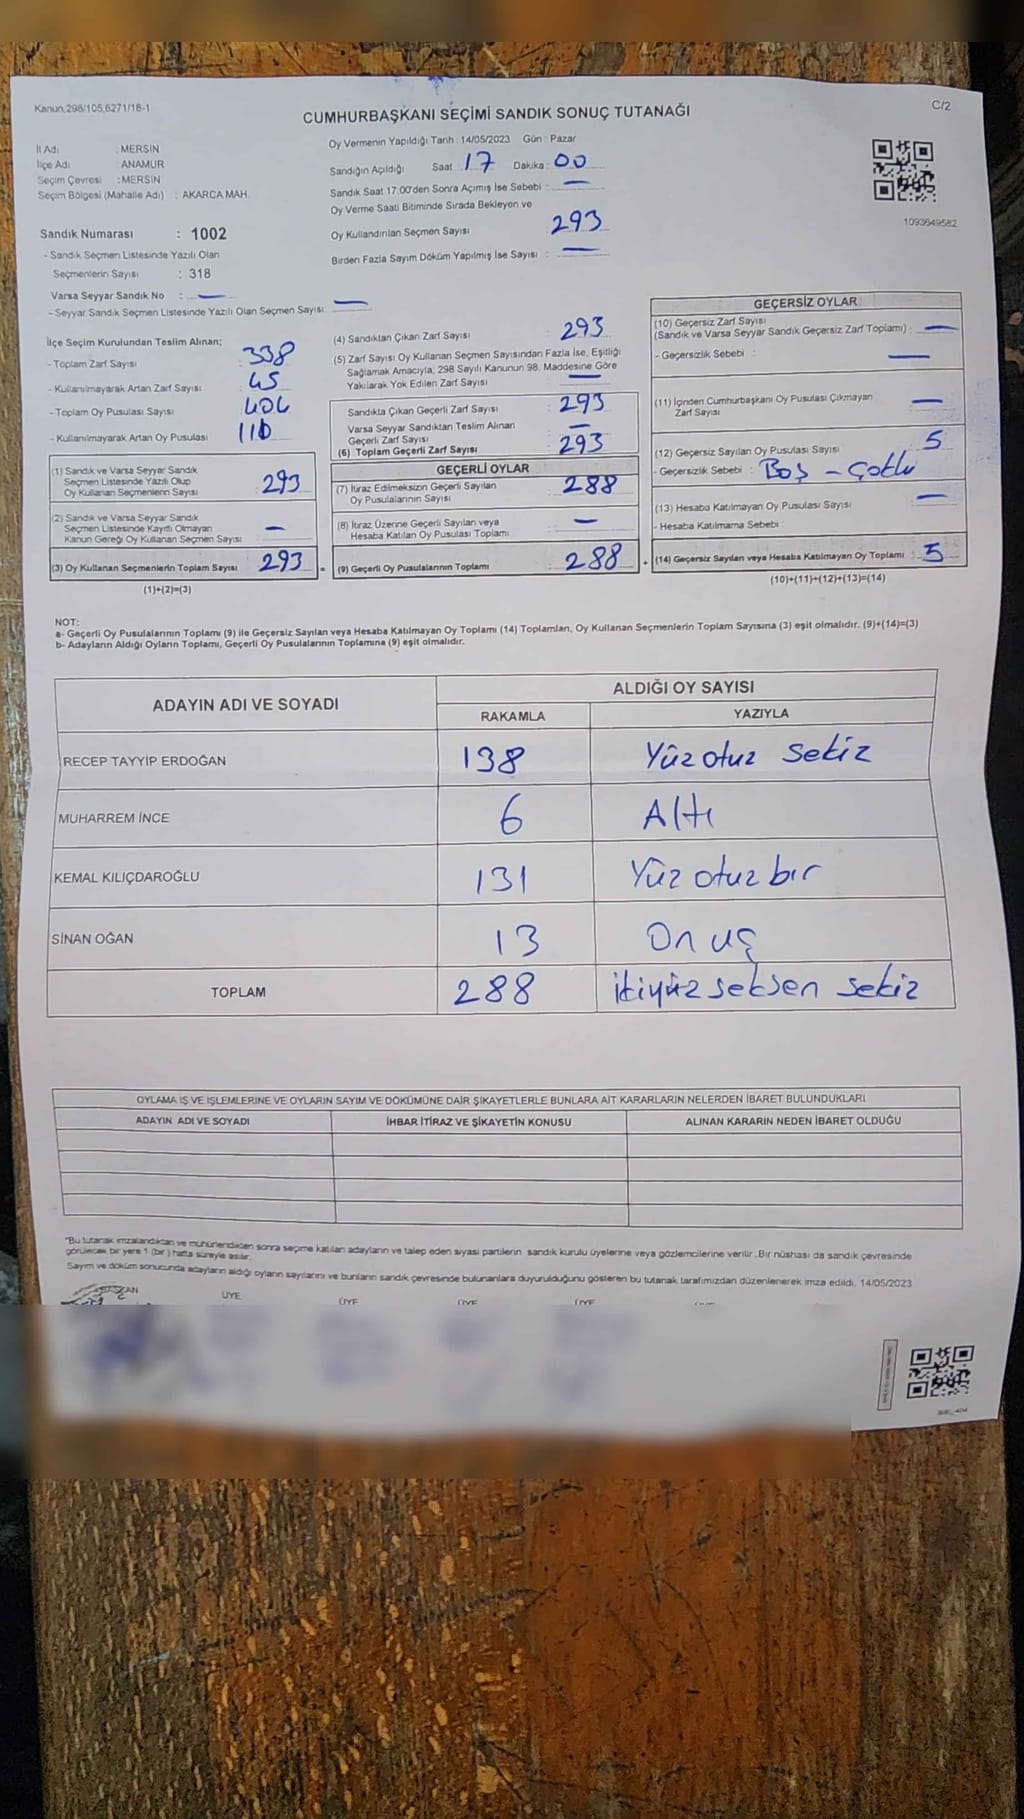 Kanun.298/105,6271/18-1
C/2
CUMHURBAŞKANI SEÇİMİ SANDIK SONUÇ TUTANAĞI
İl Adı : MERSİN
İlçe Adı : ANAMUR
Seçim Çevresi : MERSİN
Seçim Bölgesi (Mahalle Adı) : AKARCA MAH.
Sandık Numarası : 1002
- Sandık Seçmen Listesinde Yazılı Olan
Seçmenlerin Sayısı : 318
Varsa Seyyar Sandık No : —
- Seyyar Sandık Seçmen Listesinde Yazılı Olan Seçmen Sayısı : —
Oy Vermenin Yapıldığı Tarih : 14/05/2023 Gün : Pazar
Sandığın Açıldığı Saat 17 Dakika : 00
Sandık Saat 17:00'den Sonra Açımış İse Sebebi : —
Oy Verme Saati Bitiminde Sırada Bekleyen ve
Oy Kullandırılan Seçmen Sayısı 293
Birden Fazla Sayım Döküm Yapılmış İse Sayısı : —
1093649582
İlçe Seçim Kurulundan Teslim Alınan;
- Toplam Zarf Sayısı : 338
- Kullanılmayarak Artan Zarf Sayısı : 45
- Toplam Oy Pusulası Sayısı : 404
- Kullanılmayarak Artan Oy Pusulası 110
(1) Sandık ve Varsa Seyyar Sandık
Seçmen Listesinde Yazılı Olup
Oy Kullanan Seçmenlerin Sayısı : 293
(2) Sandık ve Varsa Seyyar Sandık
Seçmen Listesinde Kayıtlı Olmayan
Kanun Gereği Oy Kullanan Seçmen Sayısı —
(3) Oy Kullanan Seçmenlerin Toplam Sayısı 293 =
(1)+(2)=(3)
(4) Sandıktan Çıkan Zarf Sayısı 293
(5) Zarf Sayısı Oy Kullanan Seçmen Sayısından Fazla İse, Eşitliği
Sağlamak Amacıyla, 298 Sayılı Kanunun 98. Maddesine Göre
Yakılarak Yok Edilen Zarf Sayısı —
Sandıkta Çıkan Geçerli Zarf Sayısı 293
Varsa Seyyar Sandıktan Teslim Alınan
Geçerli Zarf Sayısı —
(6) Toplam Geçerli Zarf Sayısı 293
GEÇERLİ OYLAR
(7) İtiraz Edilmeksizin Geçerli Sayılan
Oy Pusulalarının Sayısı 288
(8) İtiraz Üzerine Geçerli Sayılan veya
Hesaba Katılan Oy Pusulası Toplamı —
(9) Geçerli Oy Pusulalarının Toplamı 288 +
GEÇERSİZ OYLAR
(10) Geçersiz Zarf Sayısı
(Sandık ve Varsa Seyyar Sandık Geçersiz Zarf Toplamı) : —
- Geçersizlik Sebebi : —
(11) İçinden Cumhurbaşkanı Oy Pusulası Çıkmayan
Zarf Sayısı —
(12) Geçersiz Sayılan Oy Pusulası Sayısı 5
- Geçersizlik Sebebi : Boş - Çoklu
(13) Hesaba Katılmayan Oy Pusulası Sayısı —
- Hesaba Katılmama Sebebi
(14) Geçersiz Sayılan veya Hesaba Katılmayan Oy Toplamı 5
(10)+(11)+(12)+(13)=(14)
NOT:
a- Geçerli Oy Pusulalarının Toplamı (9) ile Geçersiz Sayılan veya Hesaba Katılmayan Oy Toplamı (14) Toplamları, Oy Kullanan Seçmenlerin Toplam Sayısına (3) eşit olmalıdır. (9)+(14)=(3)
b- Adayların Aldığı Oyların Toplamı, Geçerli Oy Pusulalarının Toplamına (9) eşit olmalıdır.
ADAYIN ADI VE SOYADI ALDIĞI OY SAYISI
RAKAMLA YAZIYLA
RECEP TAYYİP ERDOĞAN 138 Yüz otuz sekiz
MUHARREM İNCE 6 Altı
KEMAL KILIÇDAROĞLU 131 Yüz otuz bir
SİNAN OĞAN 13 On uç
TOPLAM 288 ikiyüz seksen sekiz
OYLAMA İŞ VE İŞLEMLERİNE VE OYLARIN SAYIM VE DÖKÜMÜNE DAİR ŞİKAYETLERLE BUNLARA AİT KARARLARIN NELERDEN İBARET BULUNDUKLARI
ADAYIN ADI VE SOYADI İHBAR İTİRAZ VE ŞİKAYETİN KONUSU ALINAN KARARIN NEDEN İBARET OLDUĞU
"Bu tutanak imzalandıktan ve mühürlendikten sonra seçime katılan adayların ve talep eden siyasi partilerin sandık kurulu üyelerine veya gözlemcilerine verilir. Bir nüshası da sandık çevresinde
görülecek bir yere 1 (bir) hafta süreyle asılır.
Sayım ve döküm sonucunda adayların aldığı oyların sayılarını ve bunların sandık çevresinde bulunanlara duyurulduğunu gösteren bu tutanak tarafımızdan düzenlenerek imza edildi. 14/05/2023
ÜYE ÜYE ÜYE ÜYE